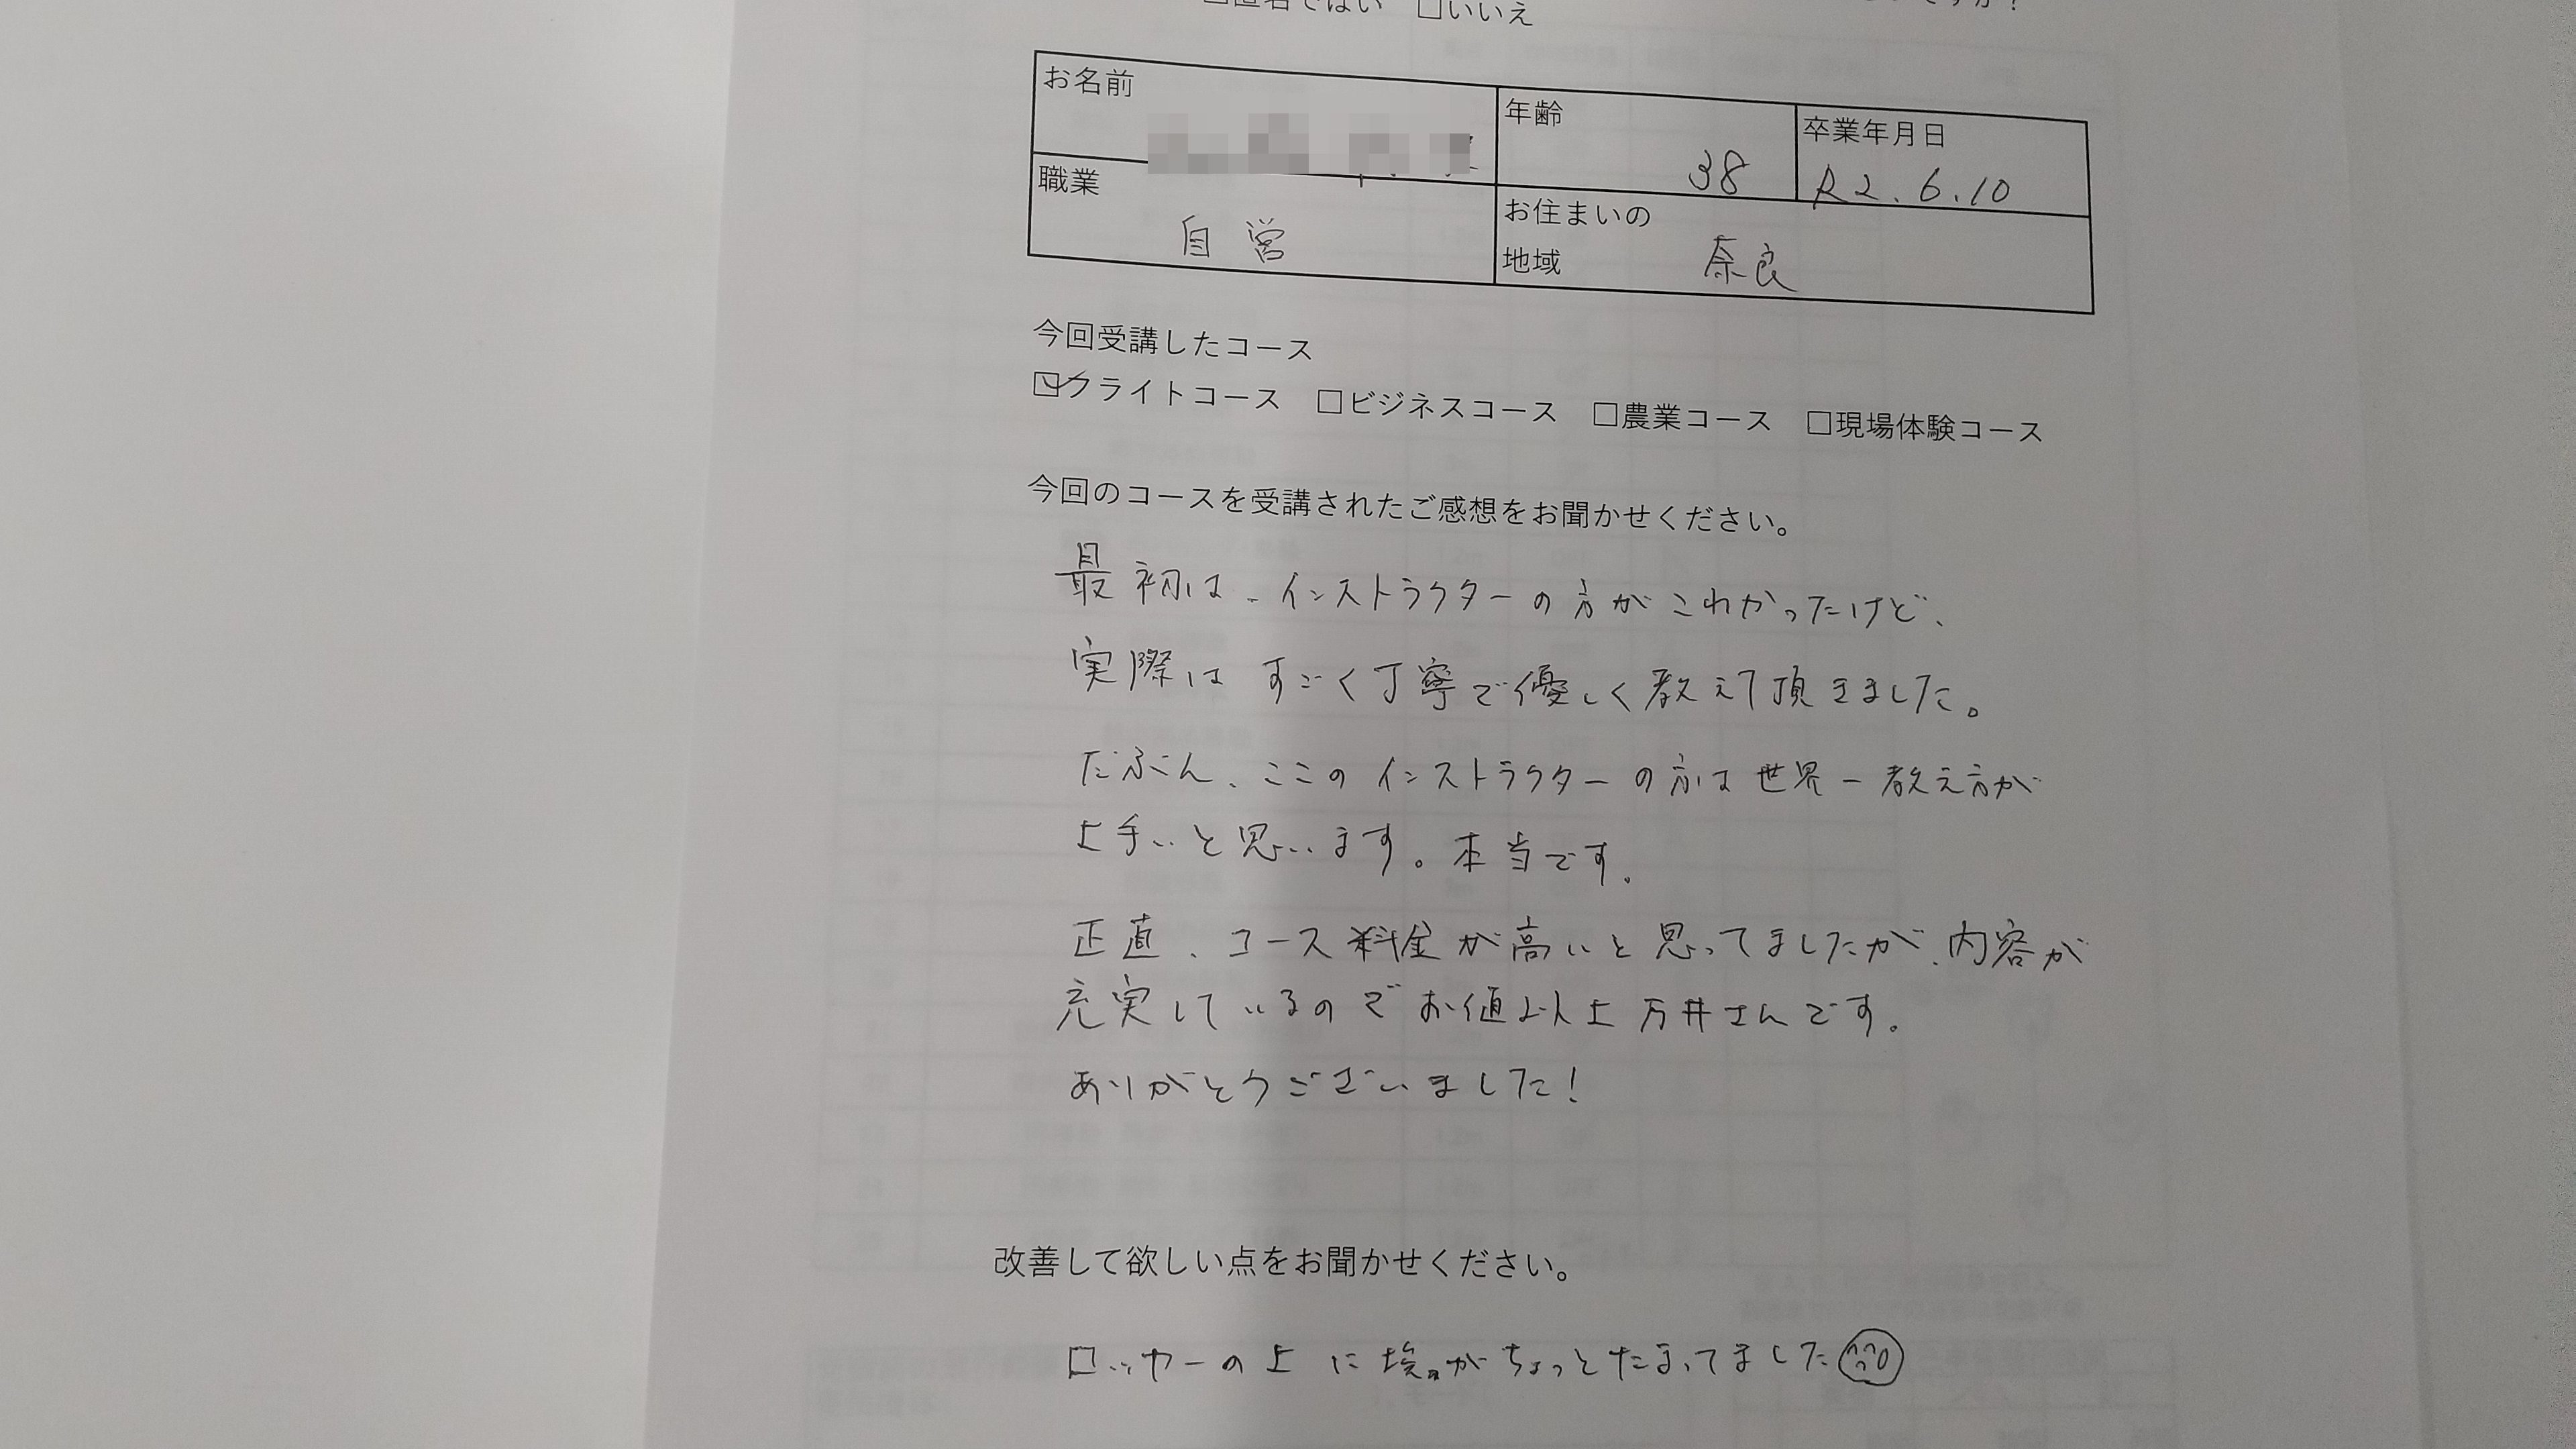 匿名ではい □いいえ
お名前
年齢
38
卒業年月日
R2.6.10
職業
自営
お住まいの
地域
奈良
今回受講したコース
☑クライトコース □ビジネスコース □農業コース □現場体験コース
今回のコースを受講されたご感想をお聞かせください。
最初は、インストラクターの方がこわかったけど、
実際はすごく丁寧で優しく教えて頂きました。
たぶん、ここのインストラクターの方は世界一教え方が
上手いと思います。本当です。
正直、コース料金が高いと思ってましたが、内容が
充実しているのでお値以上万井さんです。
ありがとうございました!
改善して欲しい点をお聞かせください。
ロッカーの上に埃がちょっとたまってました